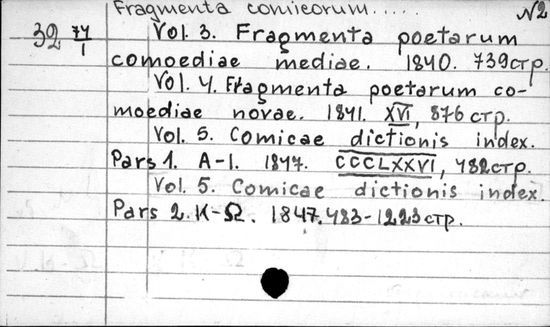 Fragmenta comicorum..... №2
32 74/1 Vol. 3. Fragmenta poetarum
comoediae mediae. 1840. 739стр.
Vol. 4. Fragmenta poetarum co-
moediae novae. 1841. XVI, 876 стр.
Vol. 5. Comicae dictionis index.
Pars 1. A-I. 1847. CCCLXXVI, 482стр.
Vol. 5. Comicae dictionis index.
Pars 2. K-Ω. 1847. 483-1223стр.